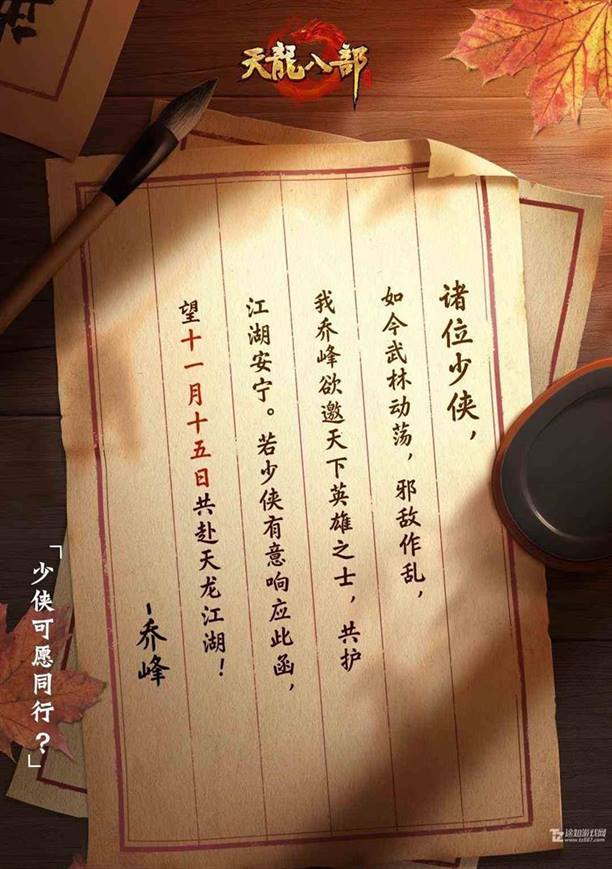 天龍八部
诸位少侠，
如今武林动荡，邪敌作乱，
我乔峰欲邀天下英雄之士，共护
江湖安宁。若少侠有意响应此函，
望十一月十五日共赴天龙江湖！
-乔峰
「少侠可愿同行？」
TZ 途知游戏网